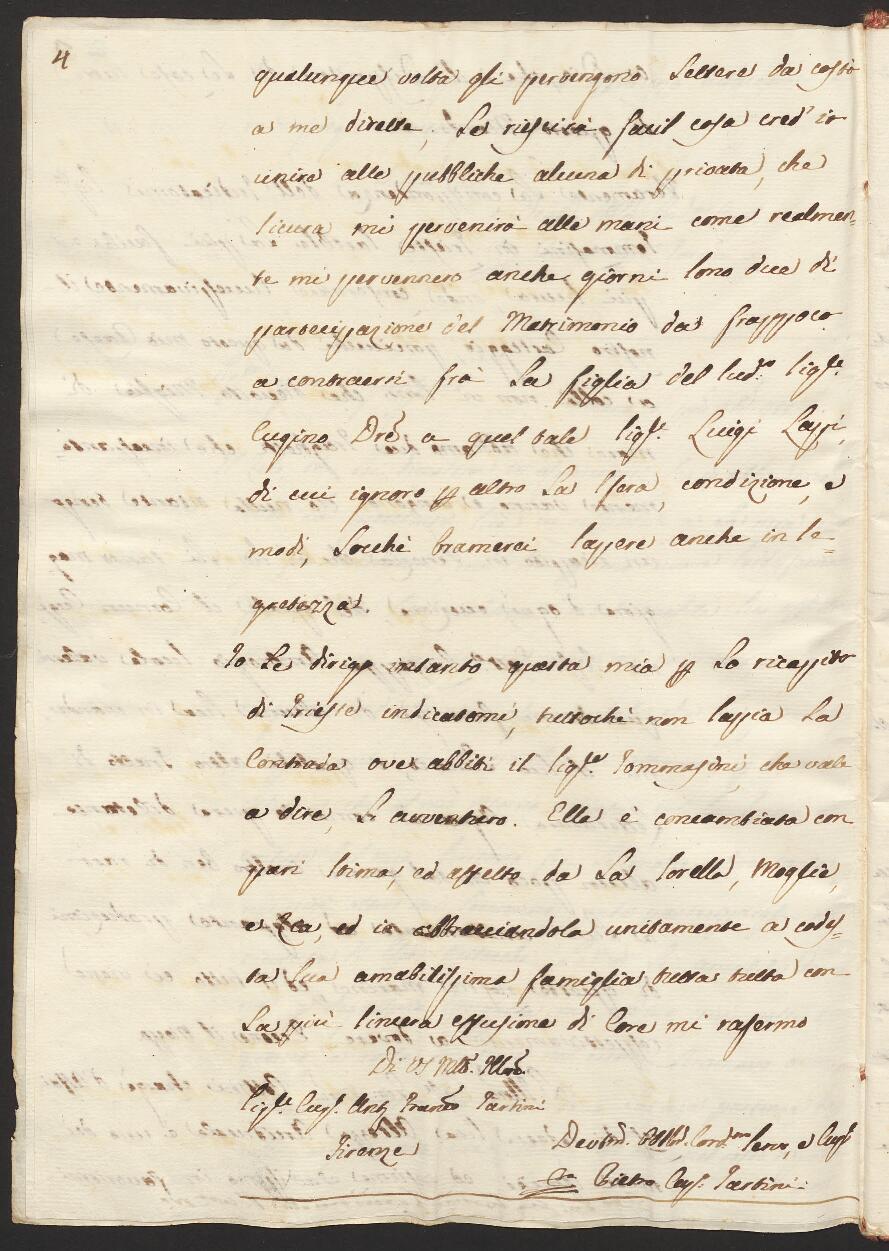 4
qualunque volta gli pervengono Lettere da costì
a me dirette, Le riescirà facil cosa cred' io
unire alle pubbliche alcuna di privata, che
sicura mi pervenirà alle mani come realmen=
te mi pervennero anche giorni sono due di
partecipazione del Matrimonio da frappoco
a contraersi frà La figlia del sud.º Sigʳᵉ
Cugino Drè a quel tale Sigʳᵉ Luigi Lappi,
di cui ignoro altro La sfera, condizione, e
modi, Locchè bramerei sapere anche in se=
gretezza.
Io Le dirigo intanto questa mia Lo ricapito
di Trieste indicatomi, tuttochè non sappia La
Contrada ove abbiti il Sigʳᵉ Tommasini, che vale
a dire, L'avventuro. Elle è concambiata con
pari stima, ed affetto da La Sorella, Moglie,
e Zea, ed io abbracciandola unitamente a codes=
ta Sua amabilissima famiglia tutta tutta con
La più sincera effusione di Core mi rafermo
Di VS Mtõ. Illrẽ
Sigʳᵉ Cugº Antº Francº Tartini
Firenze
Devmõ. Obblmõ. Cordmº Servº, e Cugº
Pietro Cavʳ Tartini